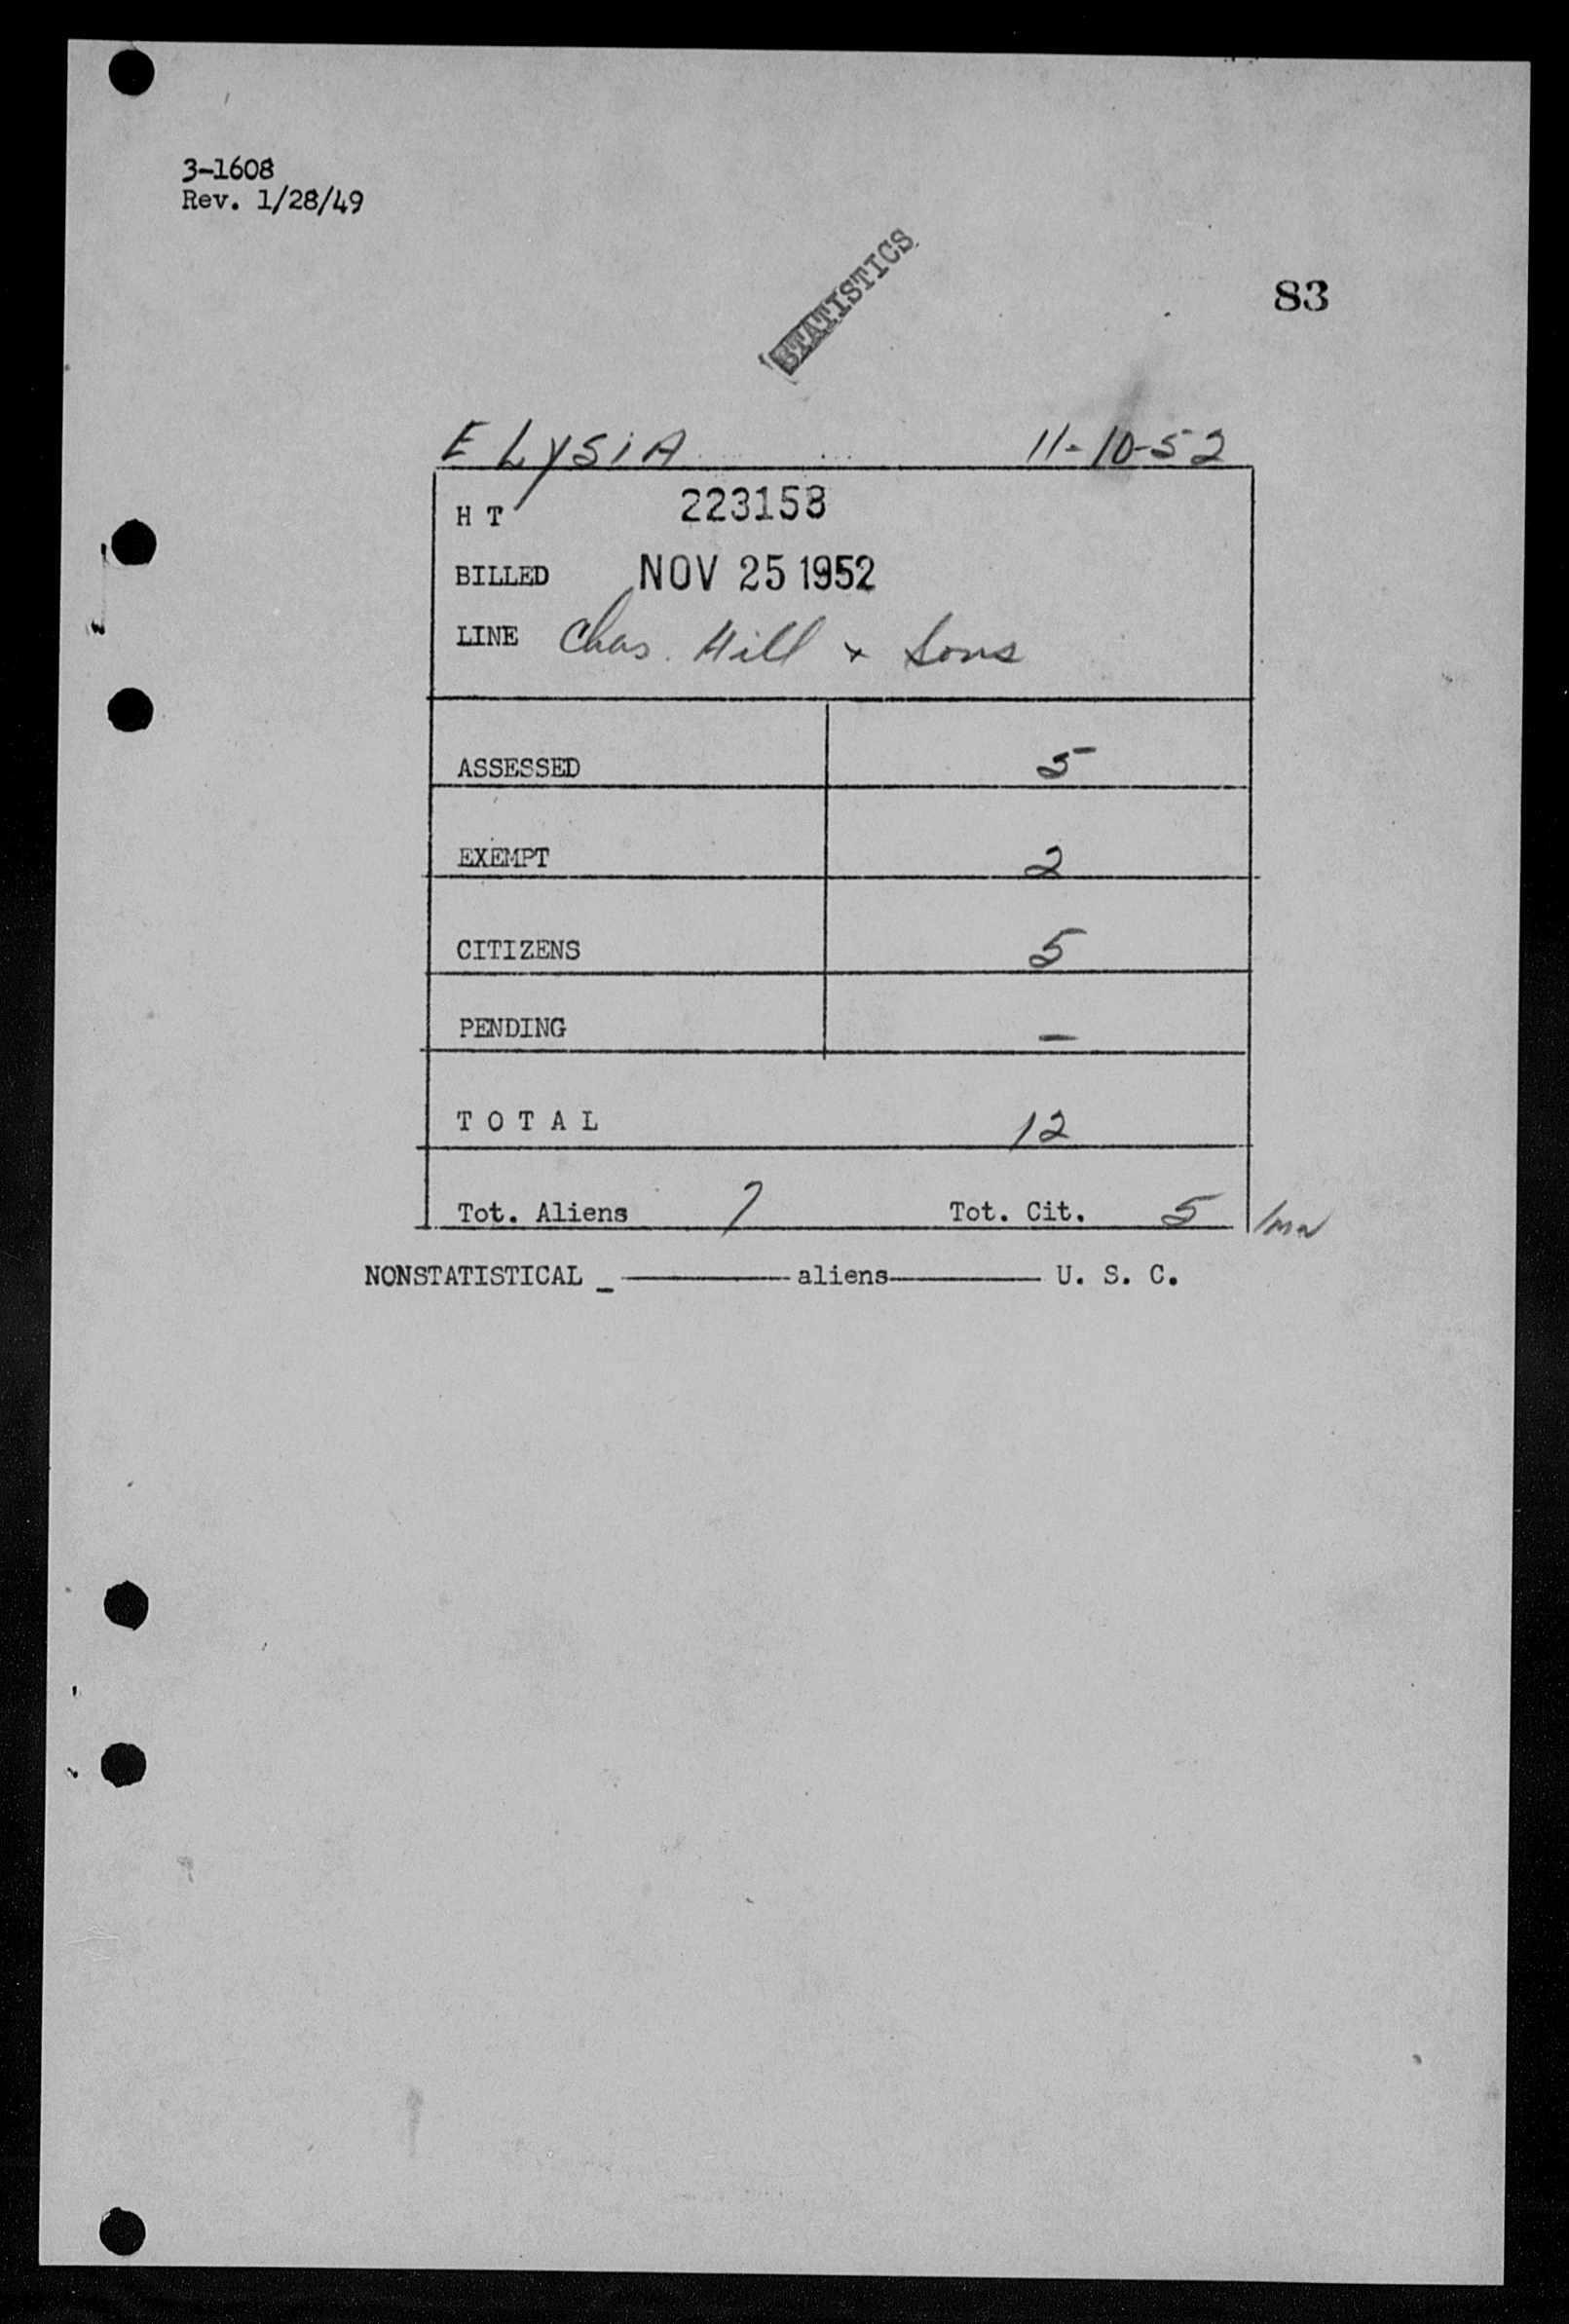 3-1608
Rev. 1/28/49
STATISTICS
83
ELYSIA 11-10-52
H T 223158
BILLED NOV 25 1952
LINE Chas. Hill & Sons
ASSESSED 5
EXEMPT 2
CITIZENS 5
PENDING —
T O T A L 12
Tot. Aliens 7 Tot. Cit. 5
NONSTATISTICAL _ ———— aliens ———— U. S. C.